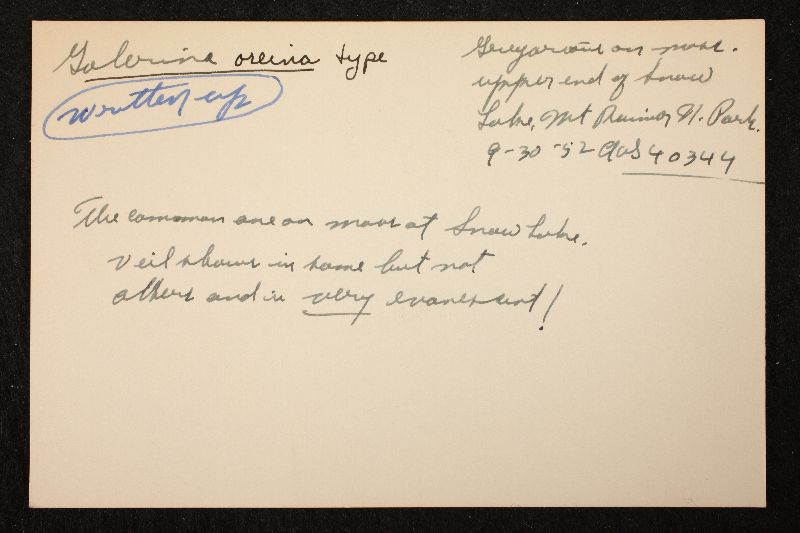 Galerina oreina type
written up
Gregarious on moss.
upper end of Snow
Lake, Mt Rainier N. Park.
9-30-52 AHS 40344
The common one on moss at Snow Lake.
Veil shows in some but not
others and is very evanescent!